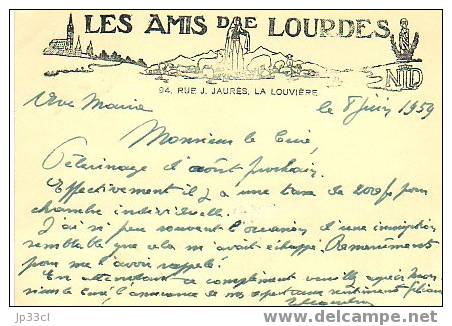 LES AMIS DE LOURDES
NTD
94, RUE J. JAURÈS, LA LOUVIÈRE
Ave Maria
le 8 juin 1959
Monsieur le Curé,
Pèlerinage d'août prochain.
Effectivement il y a une taxe de 200 fr pour
chambre individuelle.
J'ai si peu souvent l'occasion d'une inscription
semblable que cela m'avait échappé. Remerciements
pour me l'avoir rappelé.
En attendant ce complément veuillez agréer Mon
sieur le Curé, l'assurance de mes respectueux sentiments
jp33cl
delcampe.net